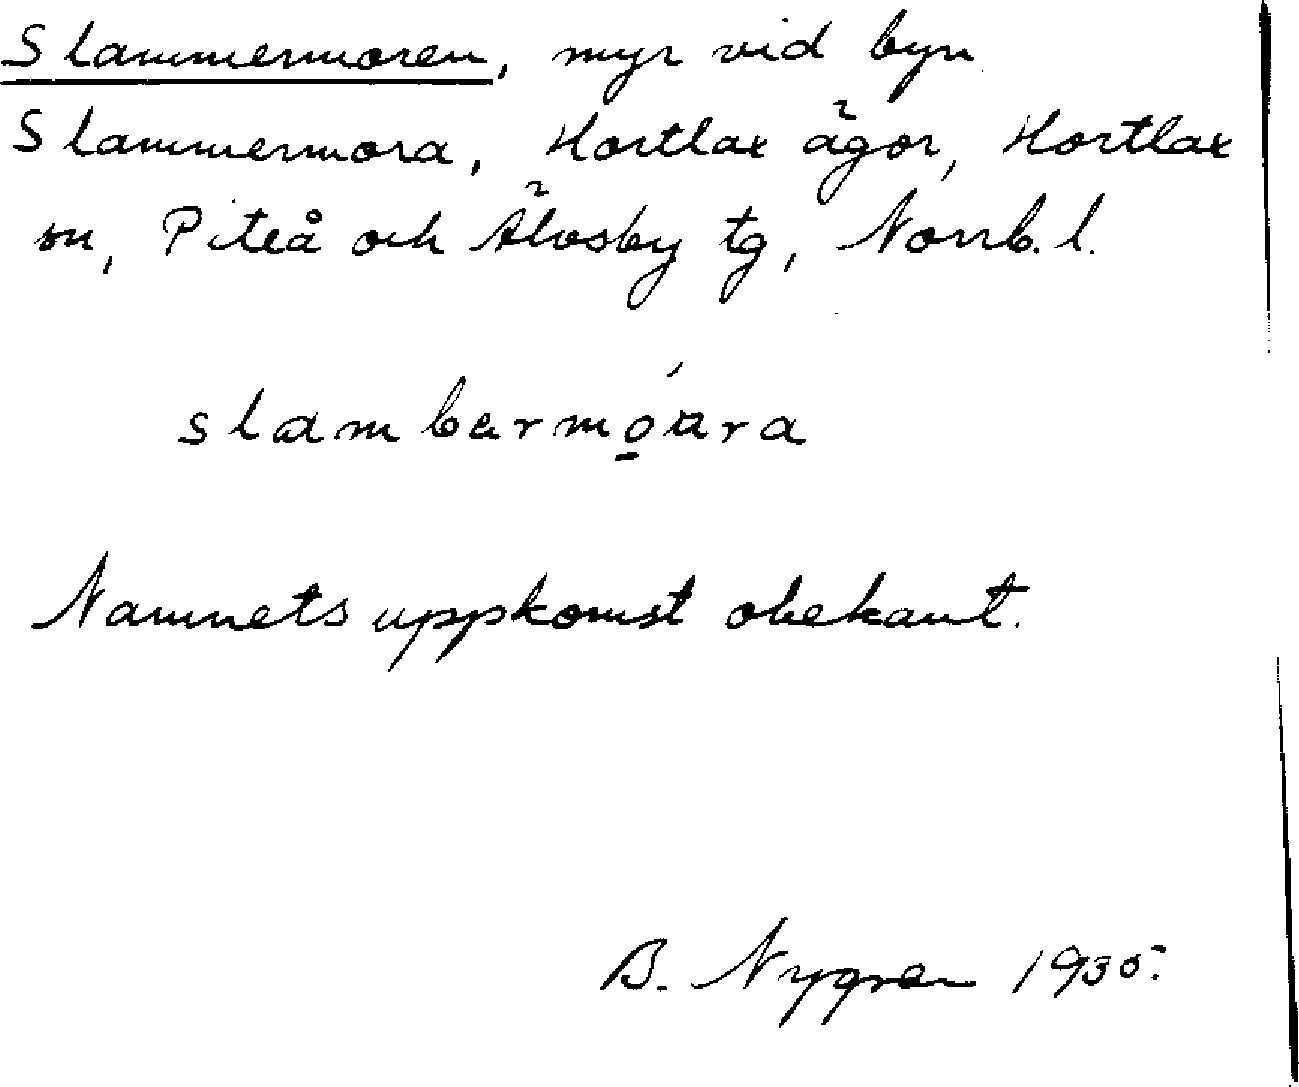 Slammermoren, myr vid byn
Slammermora, Hortlax ägor, Hortlax
sn, Piteå och Älvsby tg, Norrb. l.
slambermóara
Namnets uppkomst obekant.
B. Nygren 1935.